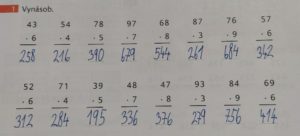 1 Vynásob.
43 54 78 97 68 87 76 57
· 6 · 4 · 5 · 7 · 8 · 3 · 9 · 6
258 216 390 679 544 261 684 342
52 71 39 48 47 93 84 69
· 6 · 4 · 5 · 7 · 8 · 3 · 9 · 6
312 284 195 336 376 279 756 414